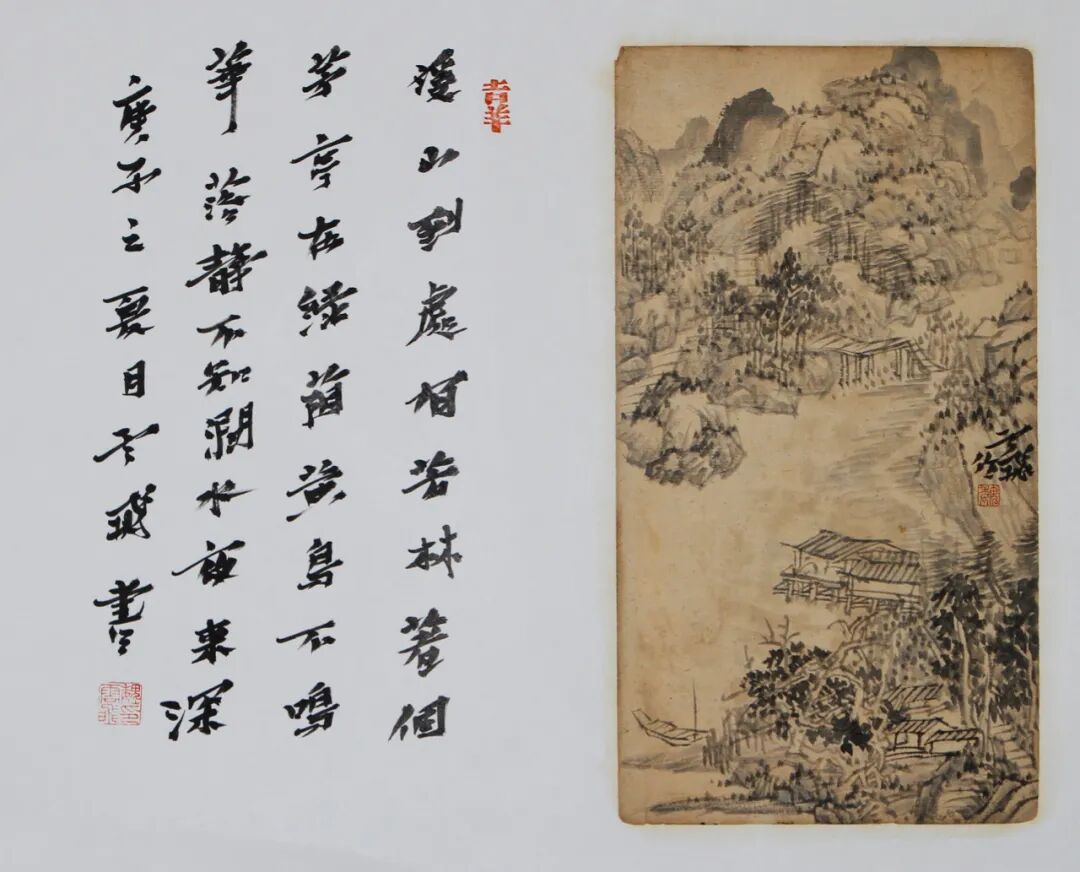 吉羊
溪山到處有林著個
茅亭在綠蔭黃鳥不鳴
華落靜不知澗水夜來深
庚子之夏月雲飛書